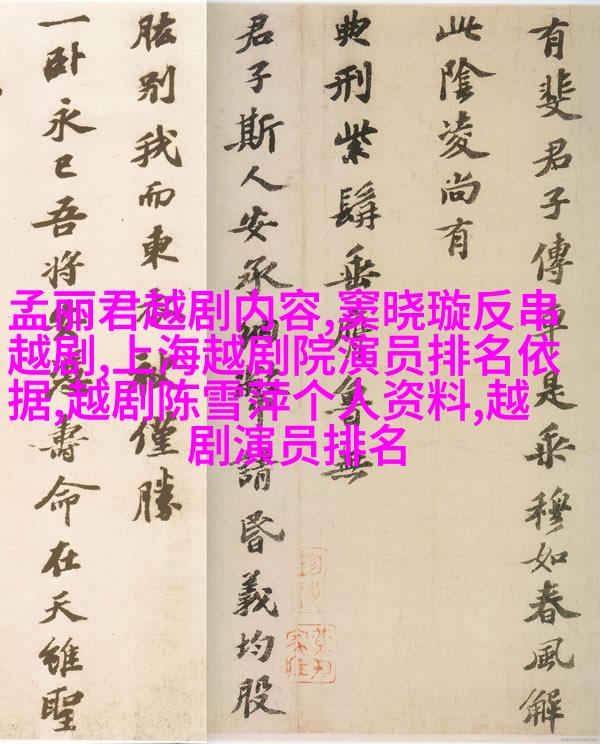 孟丽君越剧内容,窦晓璇反串
越剧,上海越剧院演员排名依
据,越剧陈雪萍个人资料,越
剧演员排名
有斐君子傳車是乘穆如春風解
此陰凌尚有
典刑紫髯垂膺魯無
君子斯人安承納幣請昏義均股
肱别我而東衣袂僅勝
一卧永已吾將安憑壽命在天雖聖